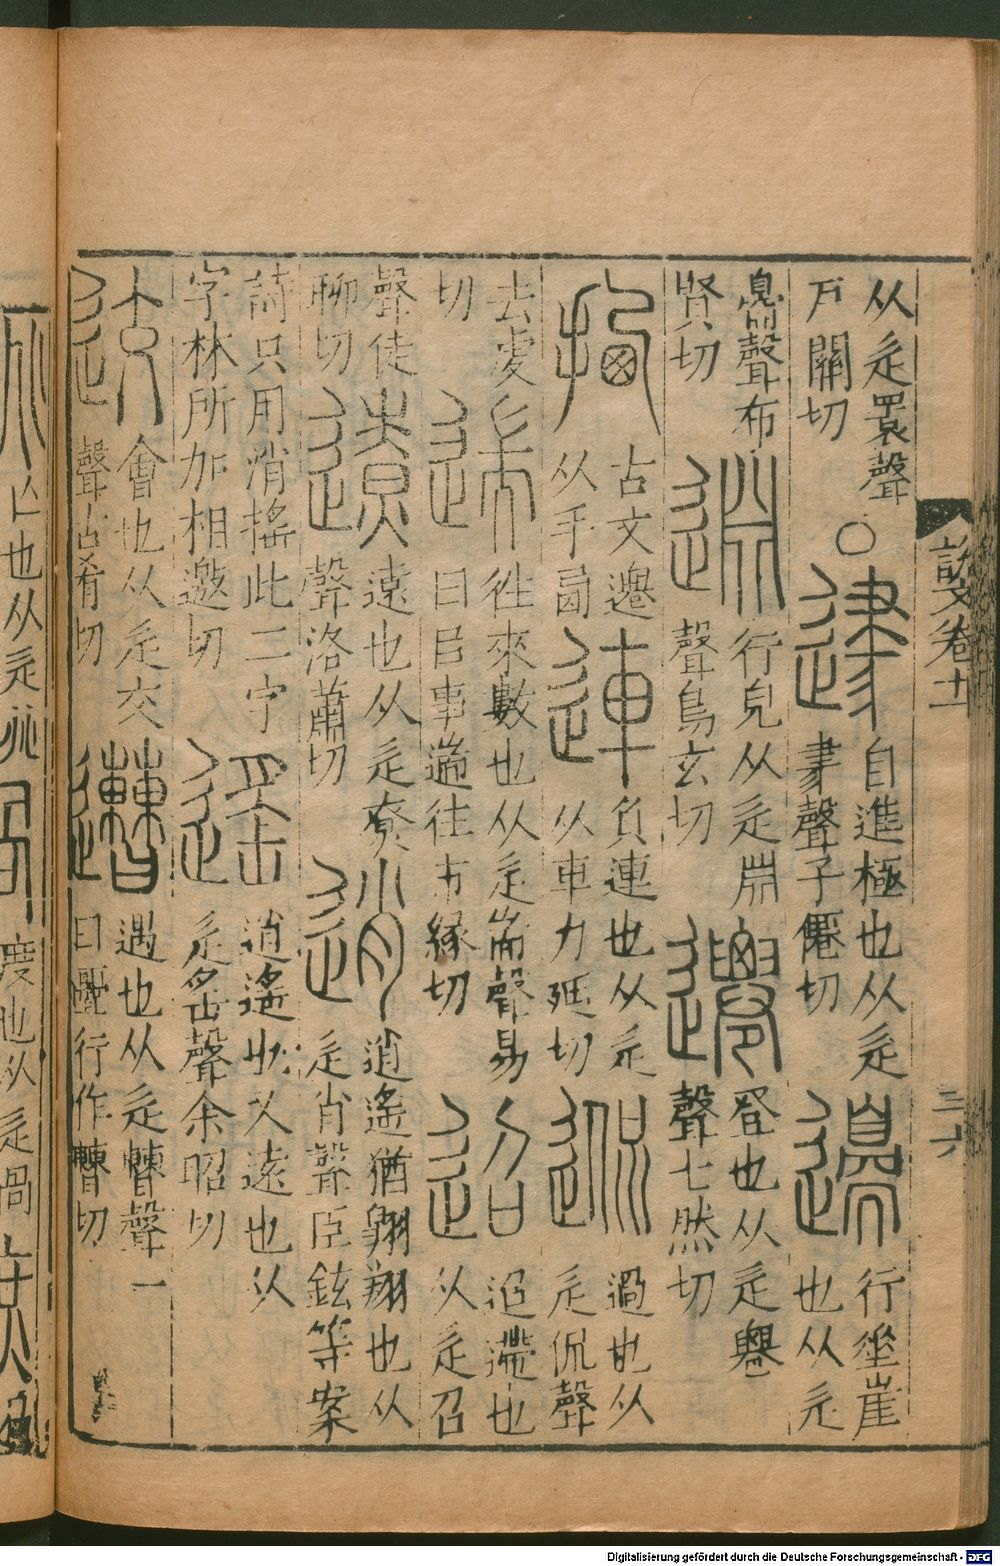 从辵瞏聲
戶關切
○
自進極也从辵
聲子僊切
邊
行垂崖
也从辵
臱聲布
賢切
行皃从辵𣶒
聲烏玄切
遷
登也从辵䙴
聲七然切
拪
古文遷
从手𠧧
連
負連也从辵
从車力延切
過也从
辵侃聲
去虔
切
遄
往來數也从辵耑聲易
曰㠯事遄往市緣切
迢
迢遰也
从辵召
聲徒
聊切
遼
遠也从辵尞
聲洛蕭切
逍
逍遙猶翱翔也从
辵肖聲臣鉉等案
詩只用消搖此二字
字林所加相邀切
遙
逍遙也又遠也从
辵䍃聲余昭切
會也从辵交
聲古肴切
遭
遇也从辵𣍘聲一
曰邐行作𣍘切
說文卷十一
三六
Digitalisierung gefördert durch die Deutsche Forschungsgemeinschaft - DFG